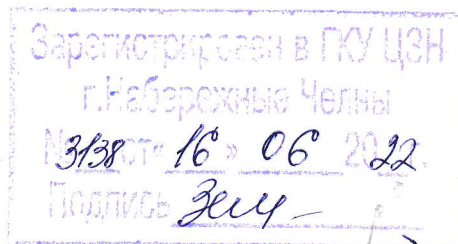 Зарегистрирован в ГКУ ЦЗН
г.Набережные Челны
№ 3138 от « 16 » 06 2022 г.
Подпись